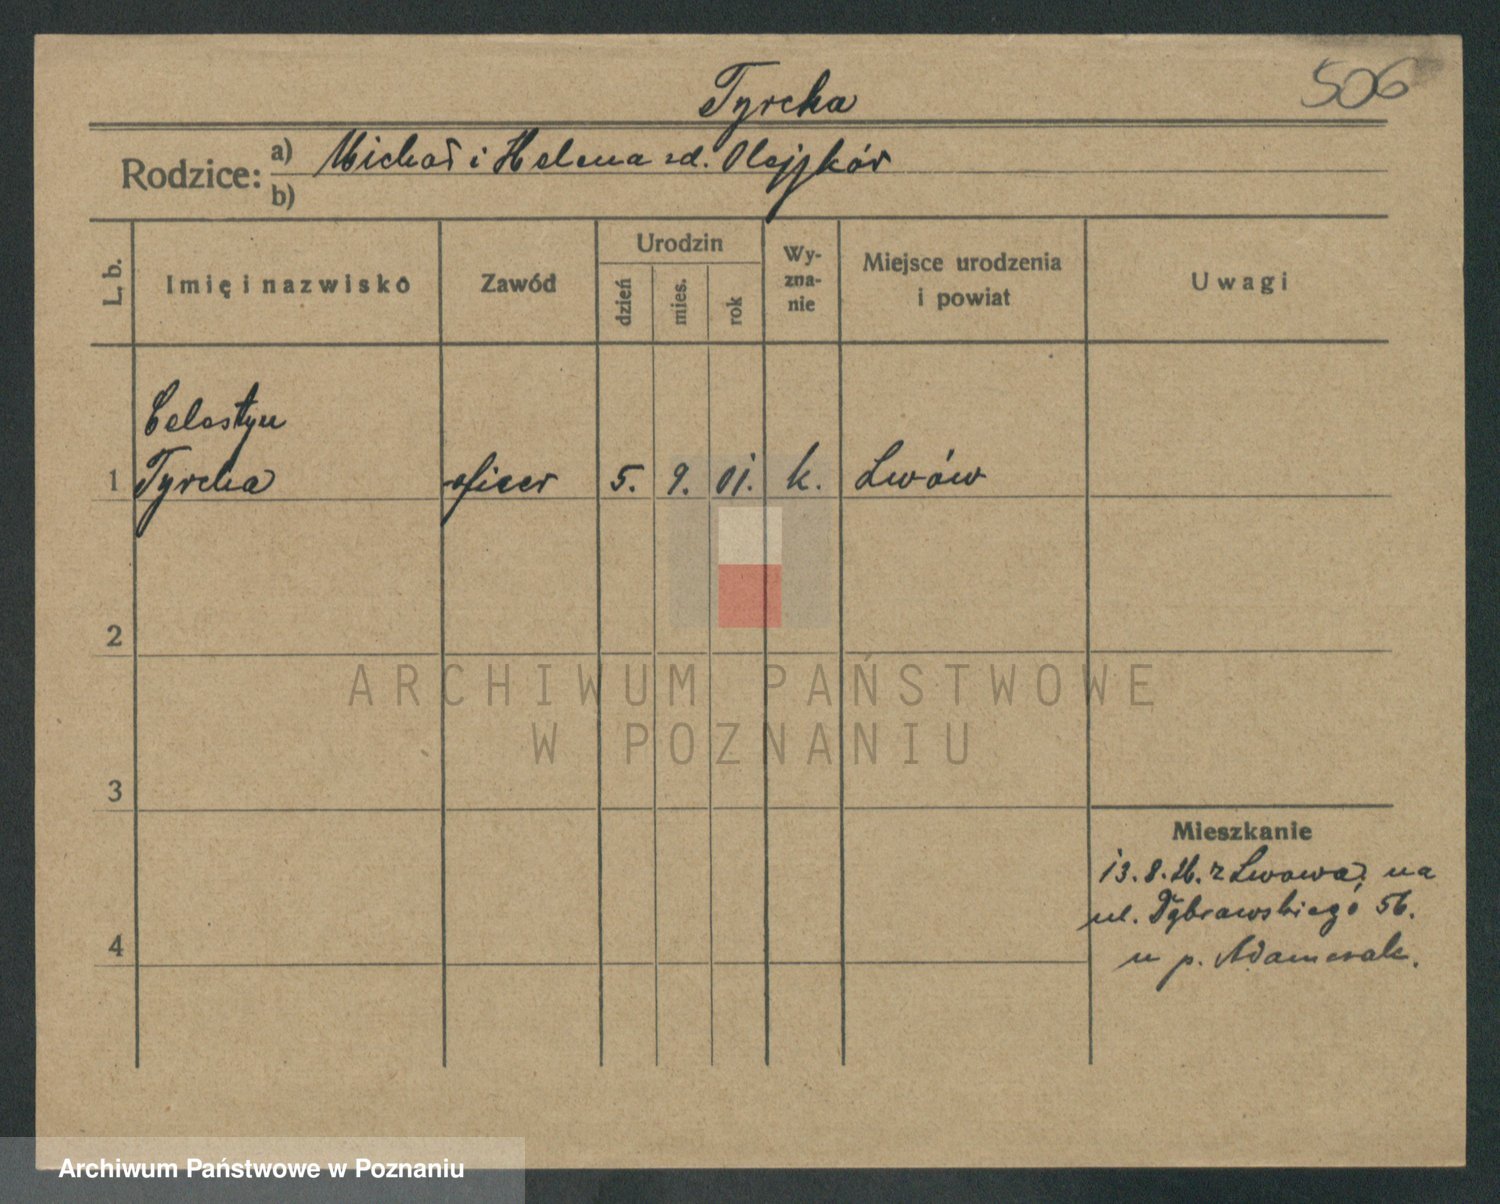 Tyrcha
506
Rodzice:
a) Michał i Helena zd. Olejków
b)
L. b.
Imię i nazwisko
Zawód
Urodzin
dzień
mies.
rok
Wy-
zna-
nie
Miejsce urodzenia
i powiat
Uwagi
Celestyn
1 Tyrcha oficer 5. 9. 01. k. Lwów
2
3
4
Mieszkanie
13.8.26. z Lwowa na
ul. Dąbrowskiego 56.
u p. Adamczak.
ARCHIWUM PAŃSTWOWE
W POZNANIU
Archiwum Państwowe w Poznaniu